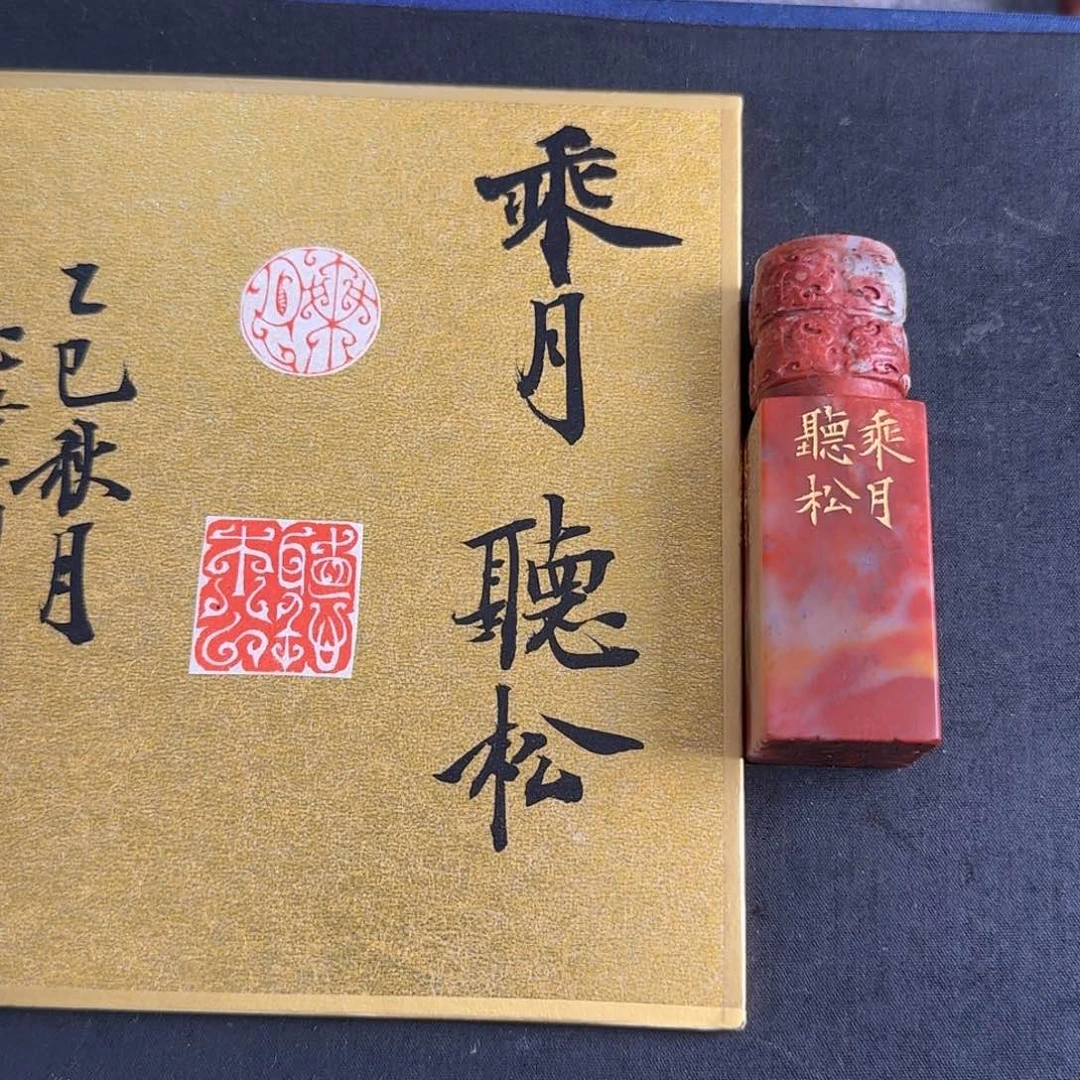 乘月聽松
乘月
聽松
乙巳秋月
乘月
聽松